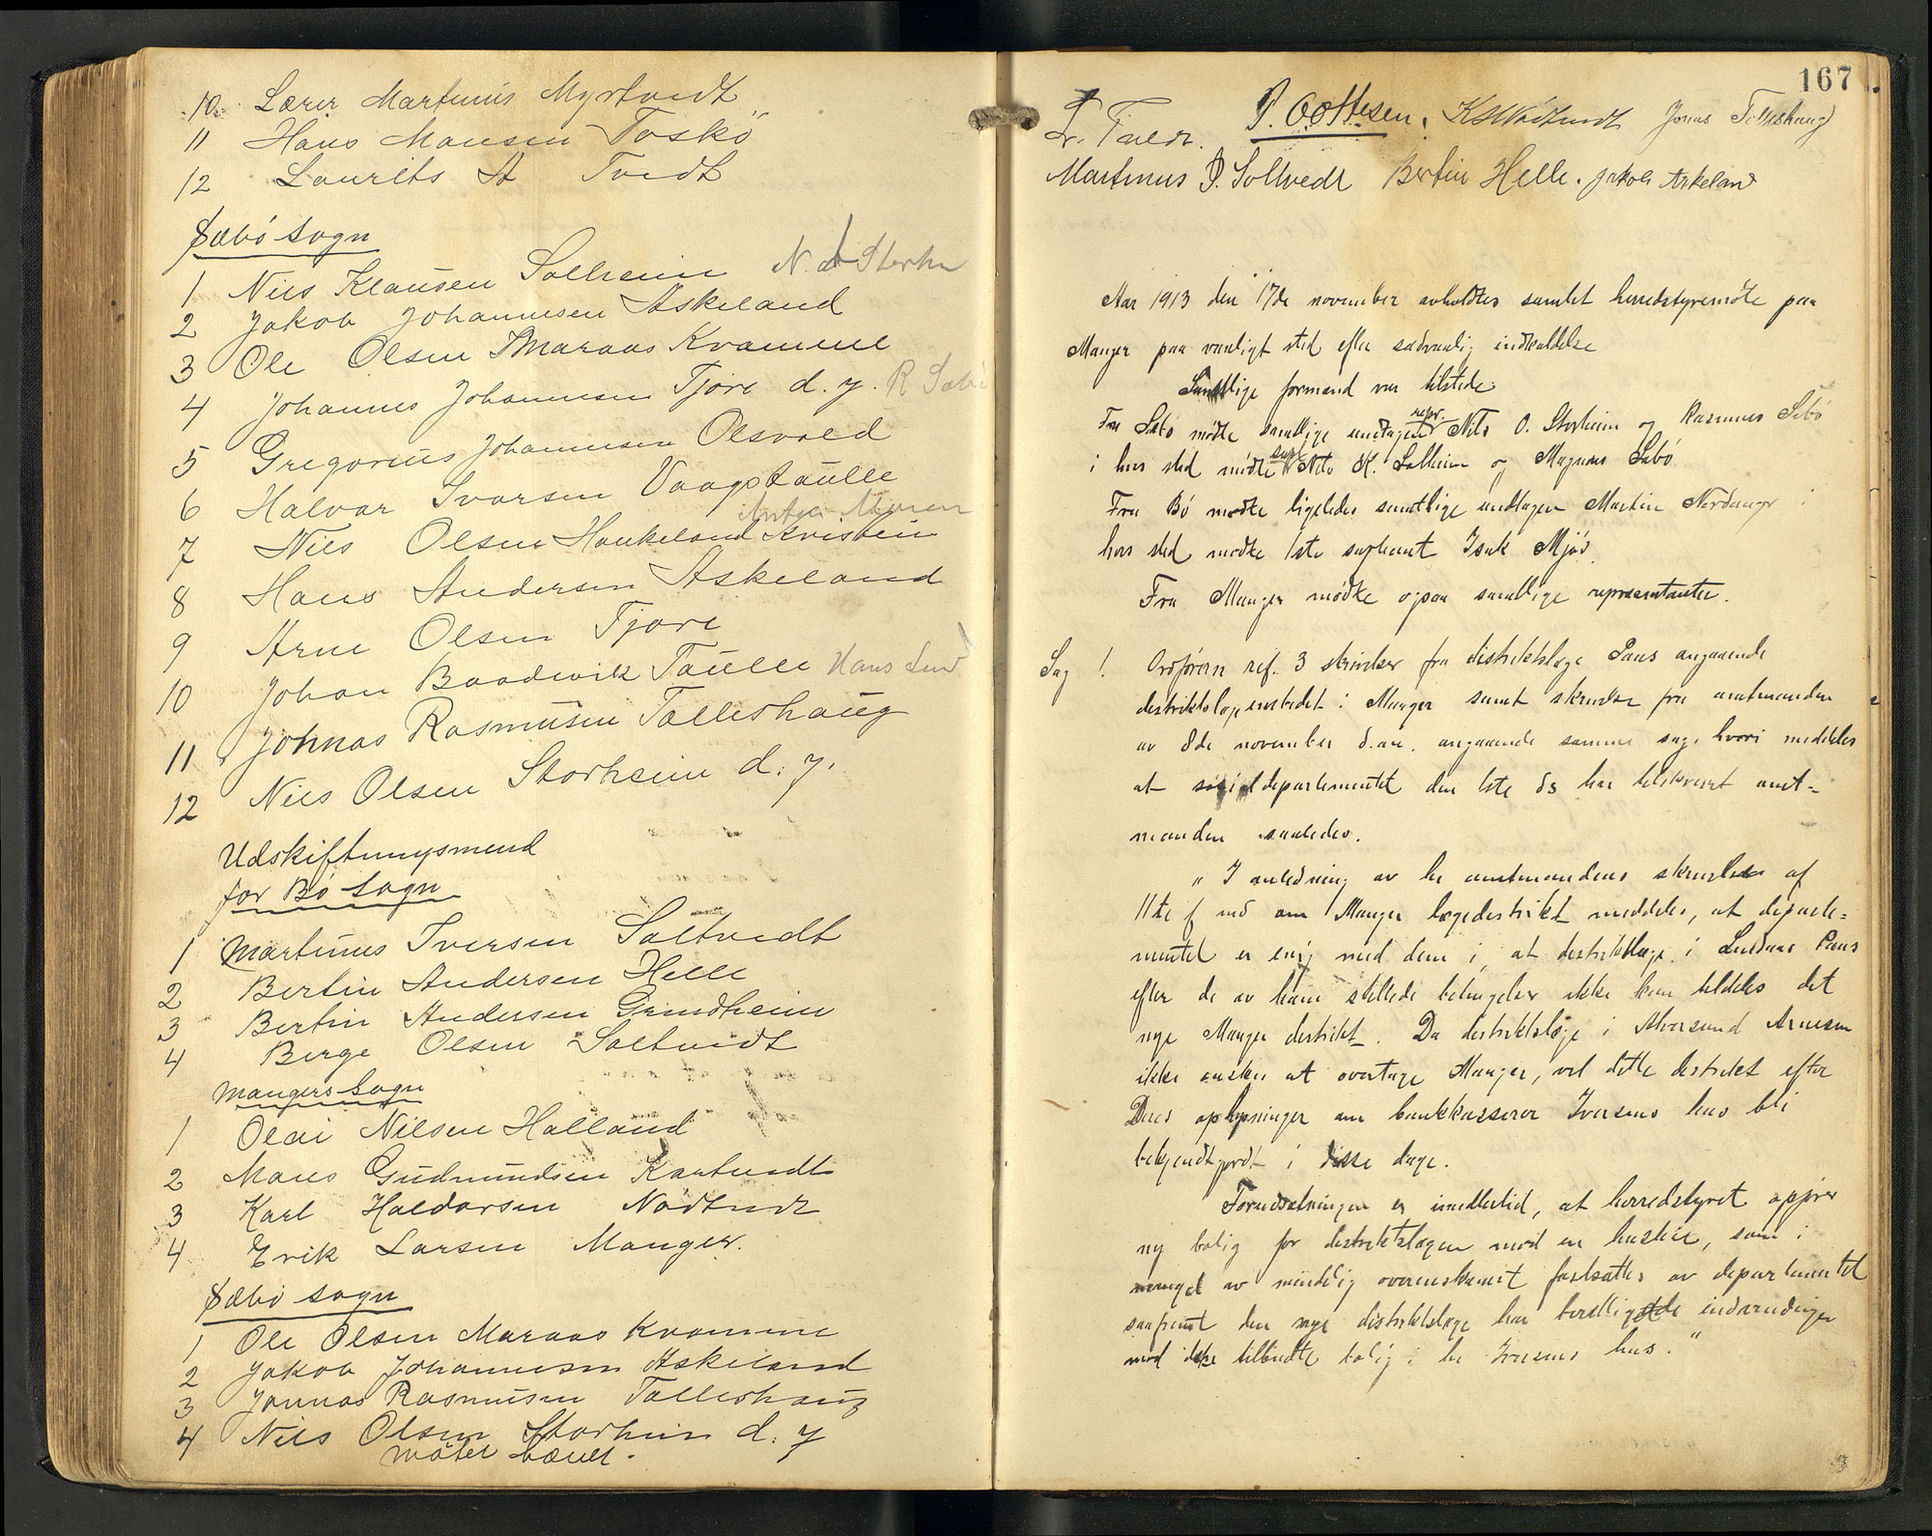 10. Lærer Martinus Myrtvedt
11 Hans Monsen Toskö
12 Laurits A Tvedt
Sæbö sogn
1 Nils Klausen Solheim N. Storhe
2 Jakob Johannesen Askeland
3 Ole Olsen Maraas Kvamme
4 Johannes Johannesen Tjore d. y. R Sæbö
5 Gregorius Johannesen Olsvold
6 Halvar Ivarsen Vaagstaulle
7 Nils Olsen Haukeland Kristein
8 Hans Andersen Askeland
9 Arne Olsen Tjore
10 Johan Baadsvik Taulle Hans
11 Johnas Rasmusen Talleshaug
12 Nils Olsen Storheim d. y.
Udskiftningsmend
for Bö sogn
1 Martinus Iversen Soltvedt
2 Bertin Andersen Helle
3 Bertin Andersen Grindheim
4 Berge Olsen Soltvedt
Mangers sogn
1 Olai Nilsen Halland
2 Mons Gudmundsen Kartvedt
3 Karl Haldorsen Nödtvedt
4 Erik Larsen Manger.
Sæbö sogn
1 Ole Olsen Maraas Kvamme
2 Jakob Johannesen Askeland
3 Jonnas Rasmusen Talleshaug
4 Nils Olsen Storheim d. y
Mötet hævet.
167
P. Oottesen. K H Nödtvedt Jonas Talleshaug
Martinus P. Soltvedt Bertin Helle. Jakob Askeland
Aar 1913 den 17de november avholdtes samlet herredstyremöte paa
Manger paa vanligt sted efter sædvanlig indkaldelse
Samtlige formænd var tilstede
Fra Sæbö mödte samtlige undtagen repr. Nils O. Storheim og Rasmus Sæbö
i hvis sted mödte supl. Nils K. Solheim og Magnus Sæbö
Fra Bö mödte ligeledes samtlige undtagen Martin Nordanger i
hvis sted mödte 1ste supleant Isak Mjös.
Fra Manger mödte ogsaa samtlige repræsentanter.
Sag 1. Ordföreren ref. 3 skrivelser fra distriktslæge Paus angaaende
distriktslægeembedet i Manger samt skrivelse fra amtmanden
av 8de november d.aa. angaaende samme sag, hvori meddeles
at socialdepartementet den 1ste ds har tilskrevet amt-
manden saaledes.
"I anledning av hr amtmandens skrivelse af
11te f md om Manger lægedistrikt meddeles, at departe-
mentet er enig med dem i, at distriktslæge i Lindaas Paus
efter de av ham stillede betingelser ikke kan tildeles det
nye Manger distrikt. Da distriktslæge i Alversund Arnesen
ikke önsker at overtage Manger, vil dette distrikt efter
Deres oplysninger om bankkasserer Iversens hus bli
bekjendtgjordt i disse dage.
Forudsætningen er imidlertid, at herredstyret opförer
ny bolig for distriktslægen mod en husleie, som i
mangel av mindelig overenskomst fastsættes av departementet
saafremt den nye distriktslæge har berettigede indvendinger
mod den tilbudte bolig i hr Iversens hus."